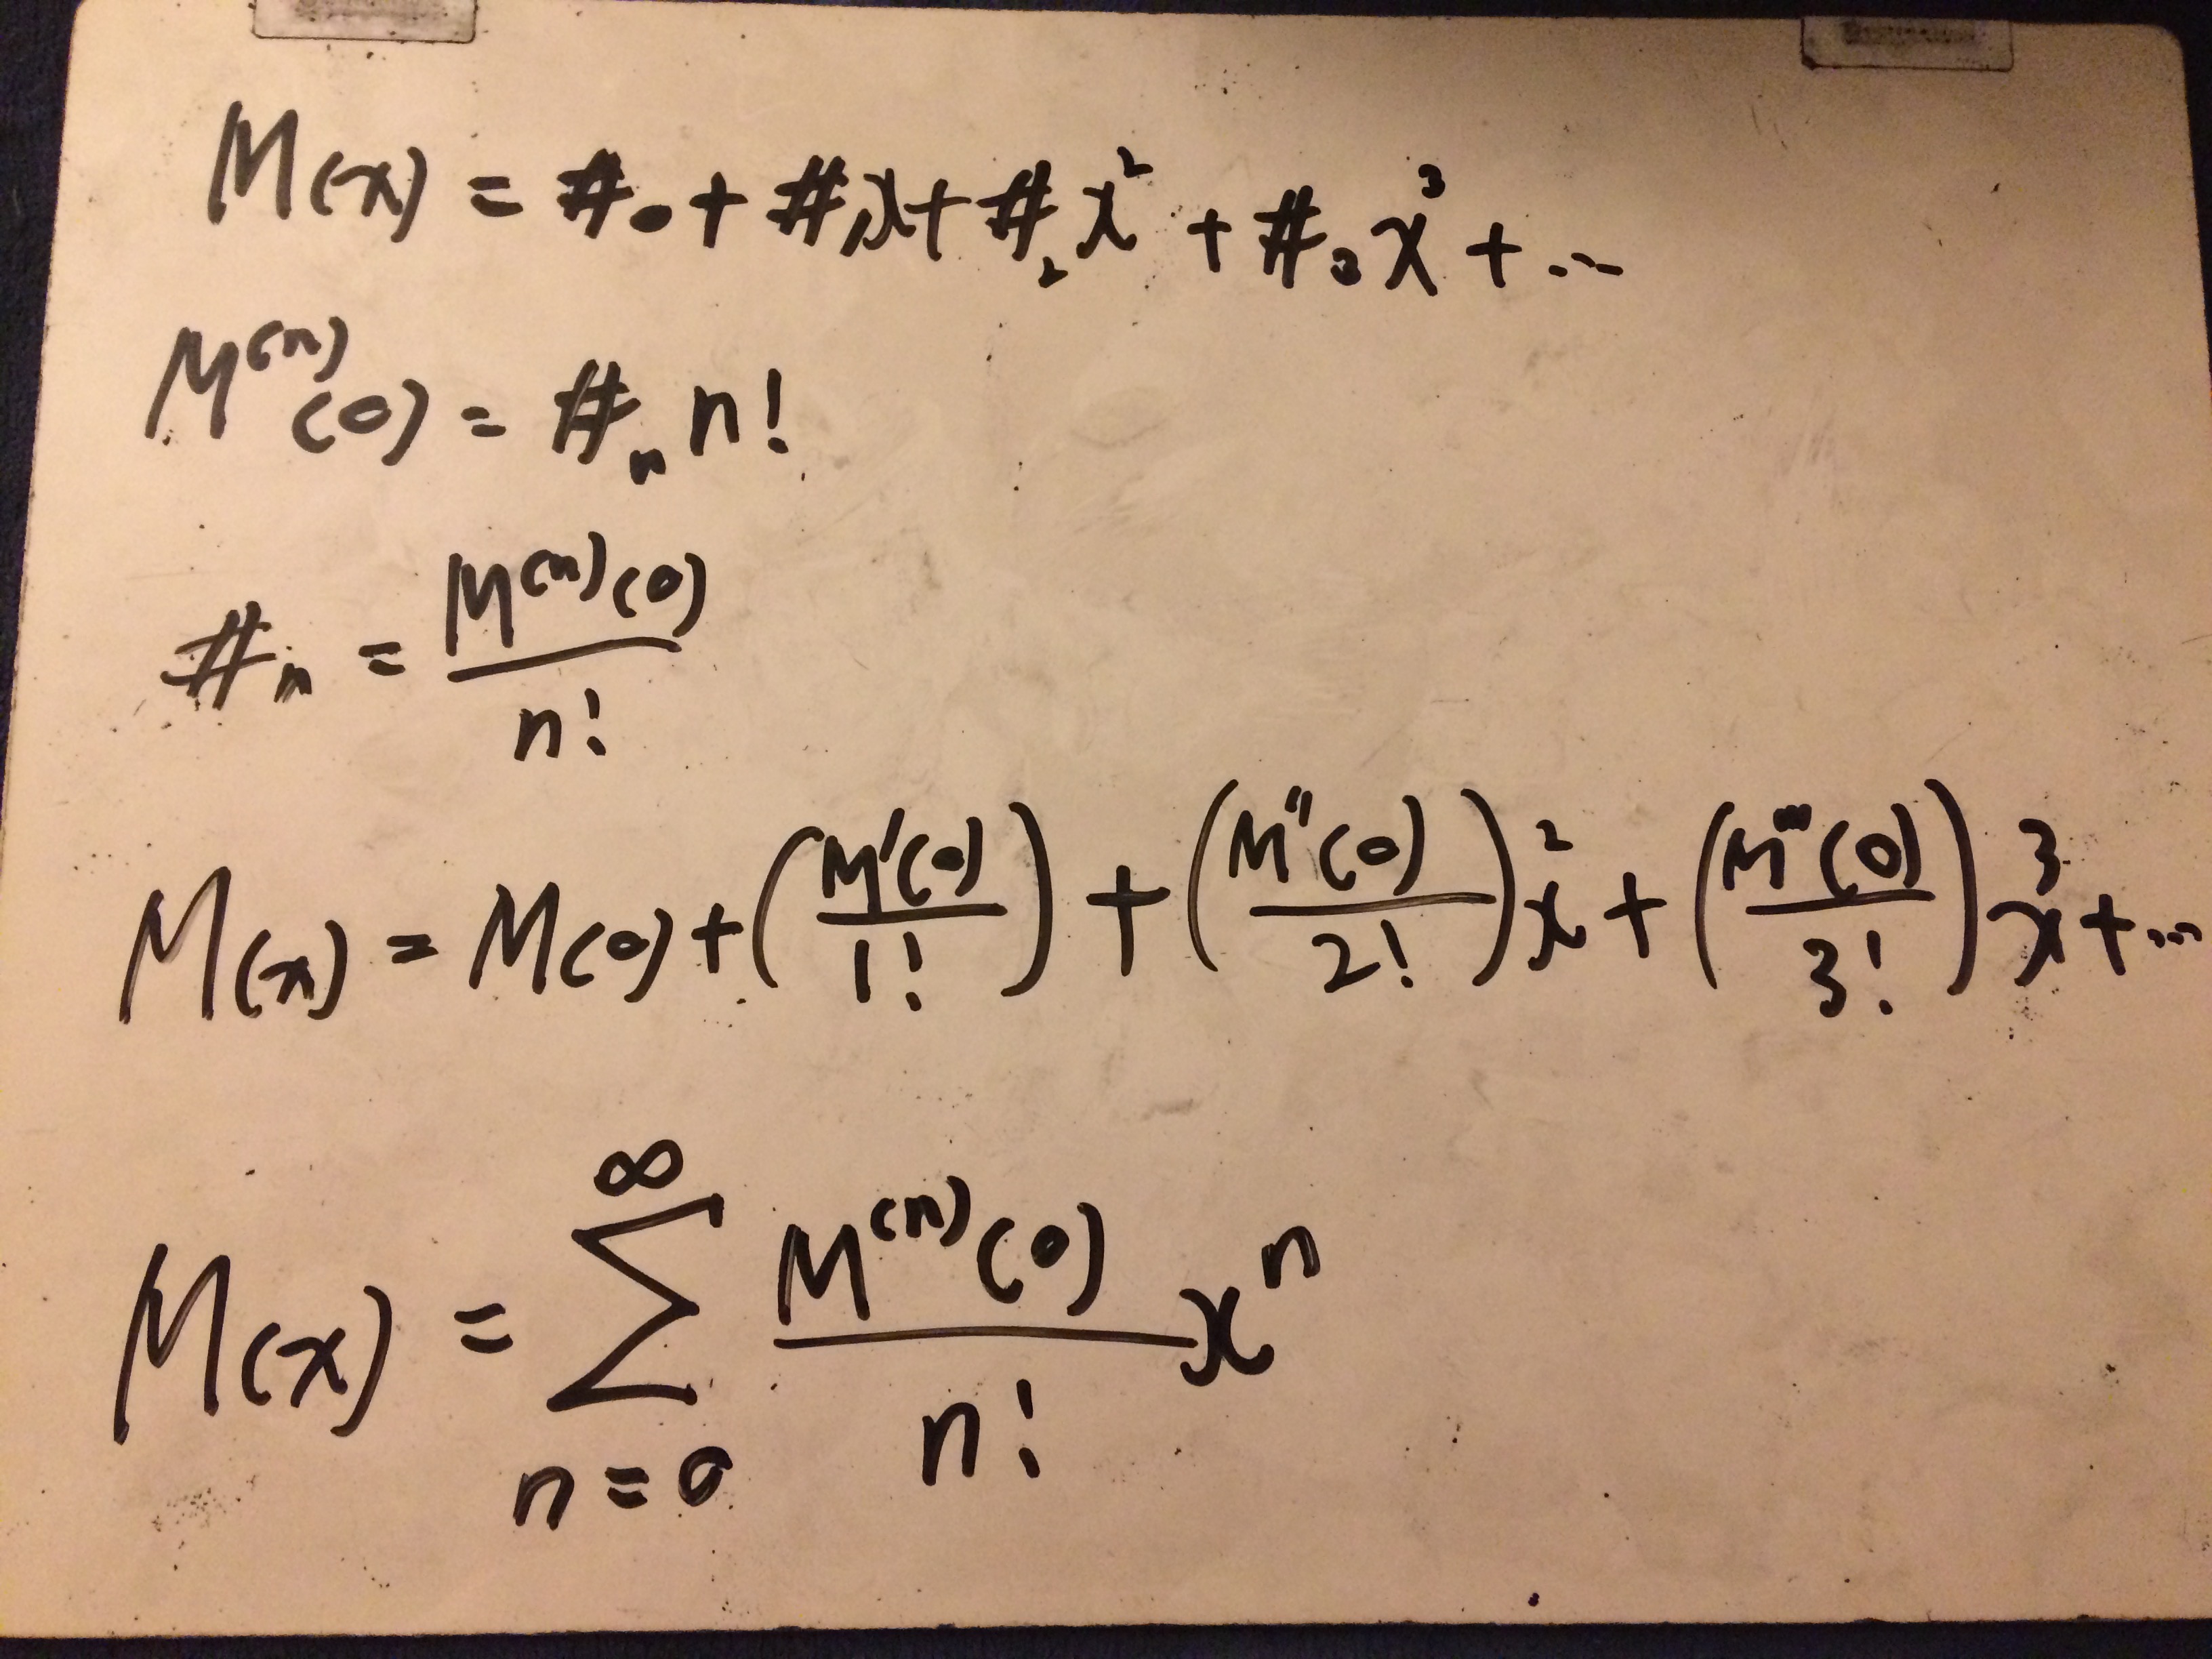 M(x) = #₀ + #x + #₂x² + #₃x³ + ...
M⁽ⁿ⁾(0) = #ₙ n!
#ₙ = M⁽ⁿ⁾(0) / n!
M(x) = M(0) + (M'(0) / 1!) + (M''(0) / 2!)x² + (M'''(0) / 3!)x³ + ...
M(x) = ∑_{n=0}^{∞} M⁽ⁿ⁾(0) / n! xⁿ